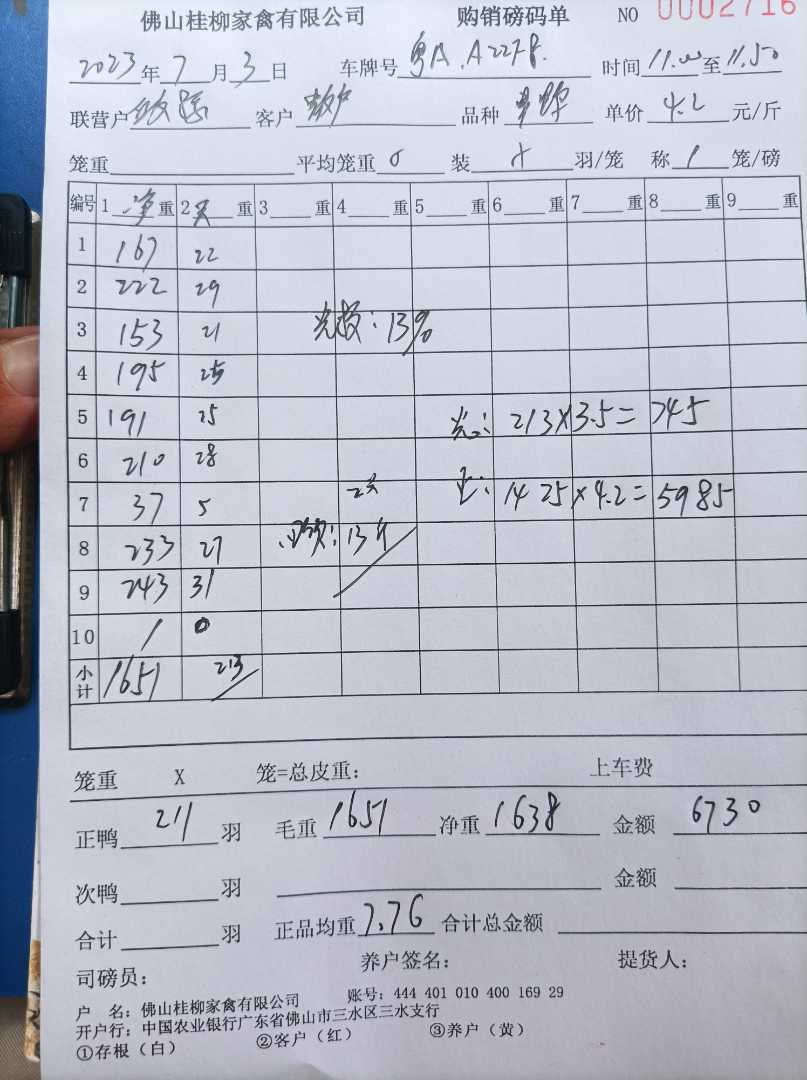 佛山桂柳家禽有限公司 购销磅码单 NO 0002716
2023年7月3日 车牌号粤A.A2278 时间11.00至11.50
联营户 客户 品种 单价4.2元/斤
笼重 平均笼重0 装 羽/笼 称1笼/磅
编号 1净重 2只重 3重 4重 5重 6重 7重 8重 9重
1 167 22
2 222 29
3 153 21 光投:13%
4 195 25
5 191 25 光:213×3.5=745
6 210 28
7 37 5 2只 毛:1425×4.2=5985
8 233 27 13斤
9 243 31
10 1 0
小计 1651 213
笼重 X 笼=总皮重: 上车费
正鸭211羽 毛重1651 净重1638 金额6730
次鸭 羽 金额
合计 羽 正品均重7.76 合计总金额
司磅员: 养户签名: 提货人:
户 名:佛山桂柳家禽有限公司 账号:444 401 010 400 169 29
开户行:中国农业银行广东省佛山市三水区三水支行
①存根(白) ②客户(红) ③养户(黄)